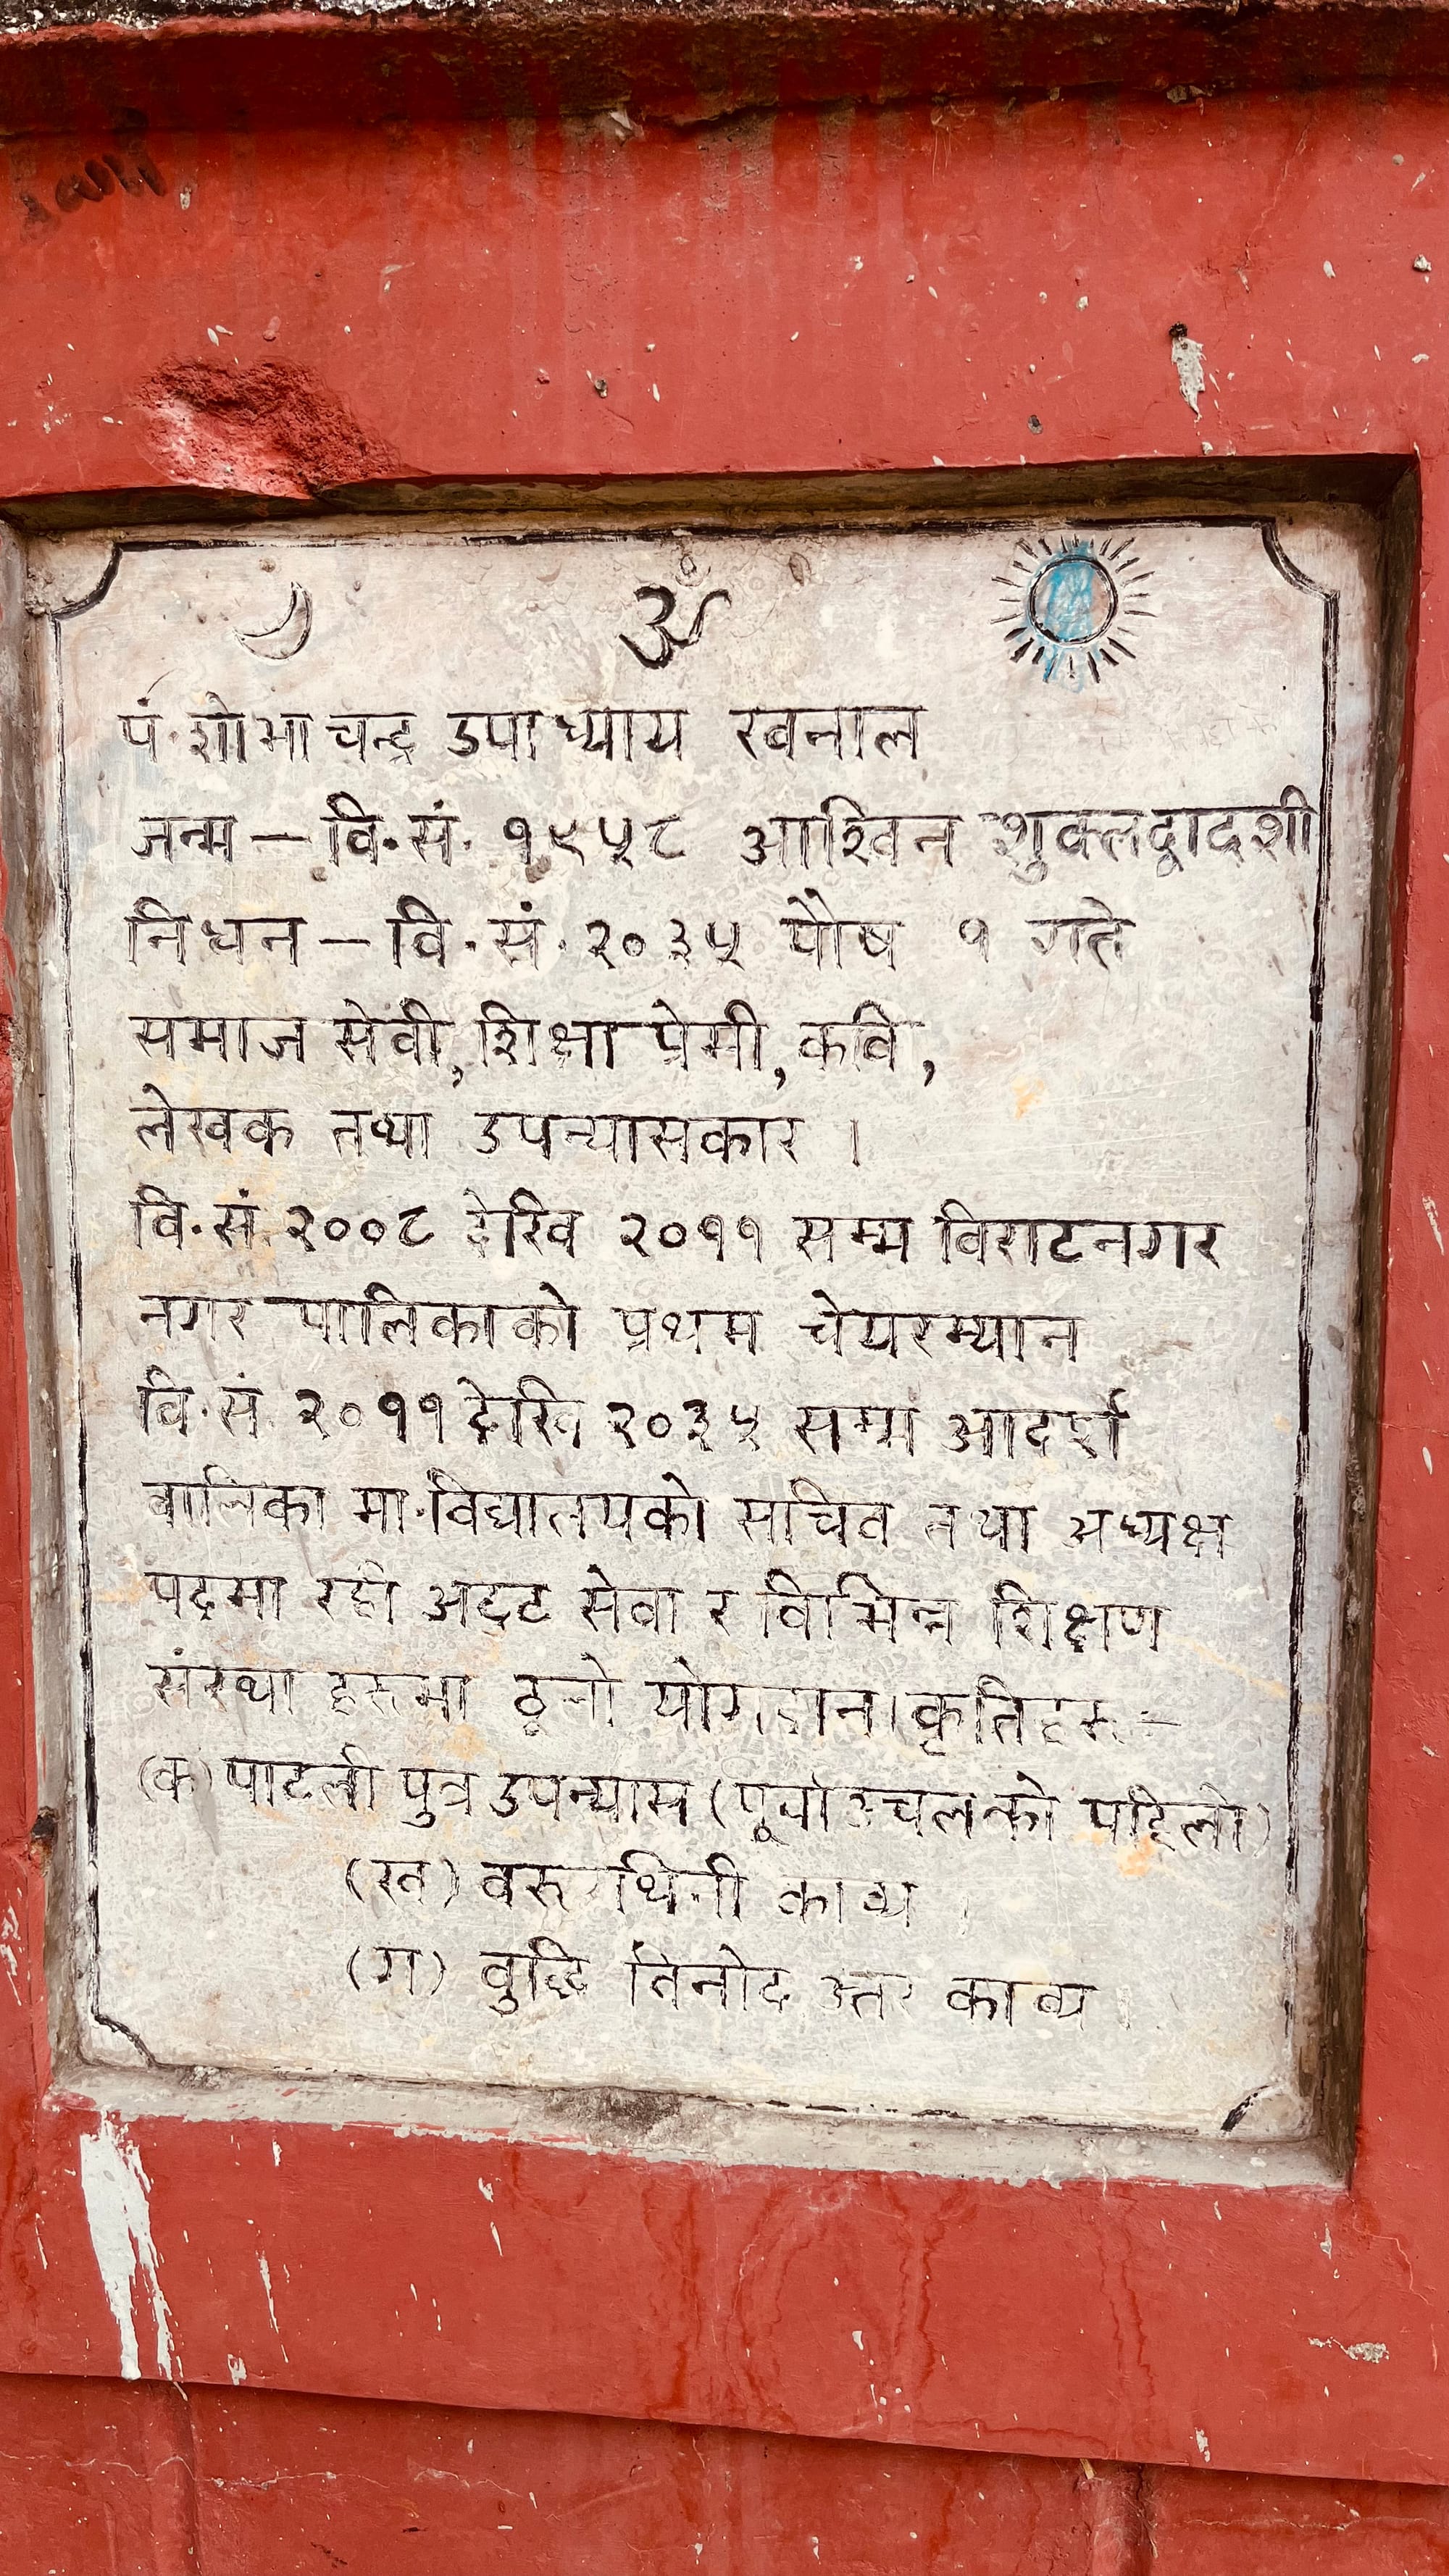 ॐ
पं. शोभा चन्द्र उपाध्याय खनाल
जन्म – वि. सं. १९५८ आश्विन शुक्लद्वादशी
निधन – वि. सं. २०३५ पौष १ गते
समाज सेवी, शिक्षा प्रेमी, कवि,
लेखक तथा उपन्यासकार ।
वि. सं. २००८ देखि २०११ सम्म विराटनगर
नगर पालिकाको प्रथम चेयरम्यान
वि. सं. २०११ देखि २०३५ सम्म आदर्श
बालिका मा. विद्यालयको सचिव तथा अध्यक्ष
पदमा रही अटुट सेवा र विभिन्न शिक्षण
संस्था हरूमा ठूलो योगदान । कृतिहरू :–
(क) पाटली पुत्र उपन्यास (पूर्वाञ्चलको पहिलो)
(ख) वरुथिनी काव्य ।
(ग) वुद्धि विनोद उत्तर काव्य ।